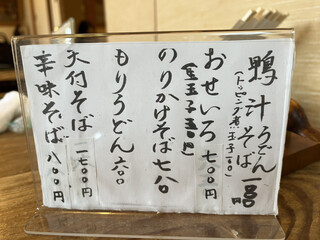 鴨汁 うどん そば
(トッピング煮玉子100)
おせいろ 七〇〇円
(玉子50円)
のりかけそば 七八〇
もりうどん 六〇〇
天付そば 一七〇〇円
辛味そば 八〇〇円